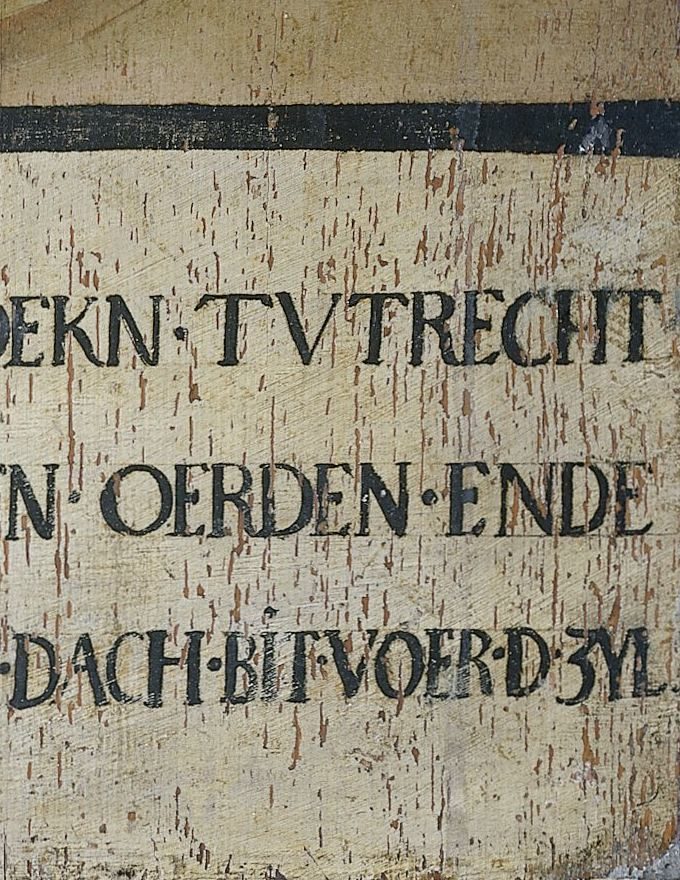 DEKN · TVTRECHT
EN · OERDEN · ENDE
· DACH · BIT · VOER · D · ZYL